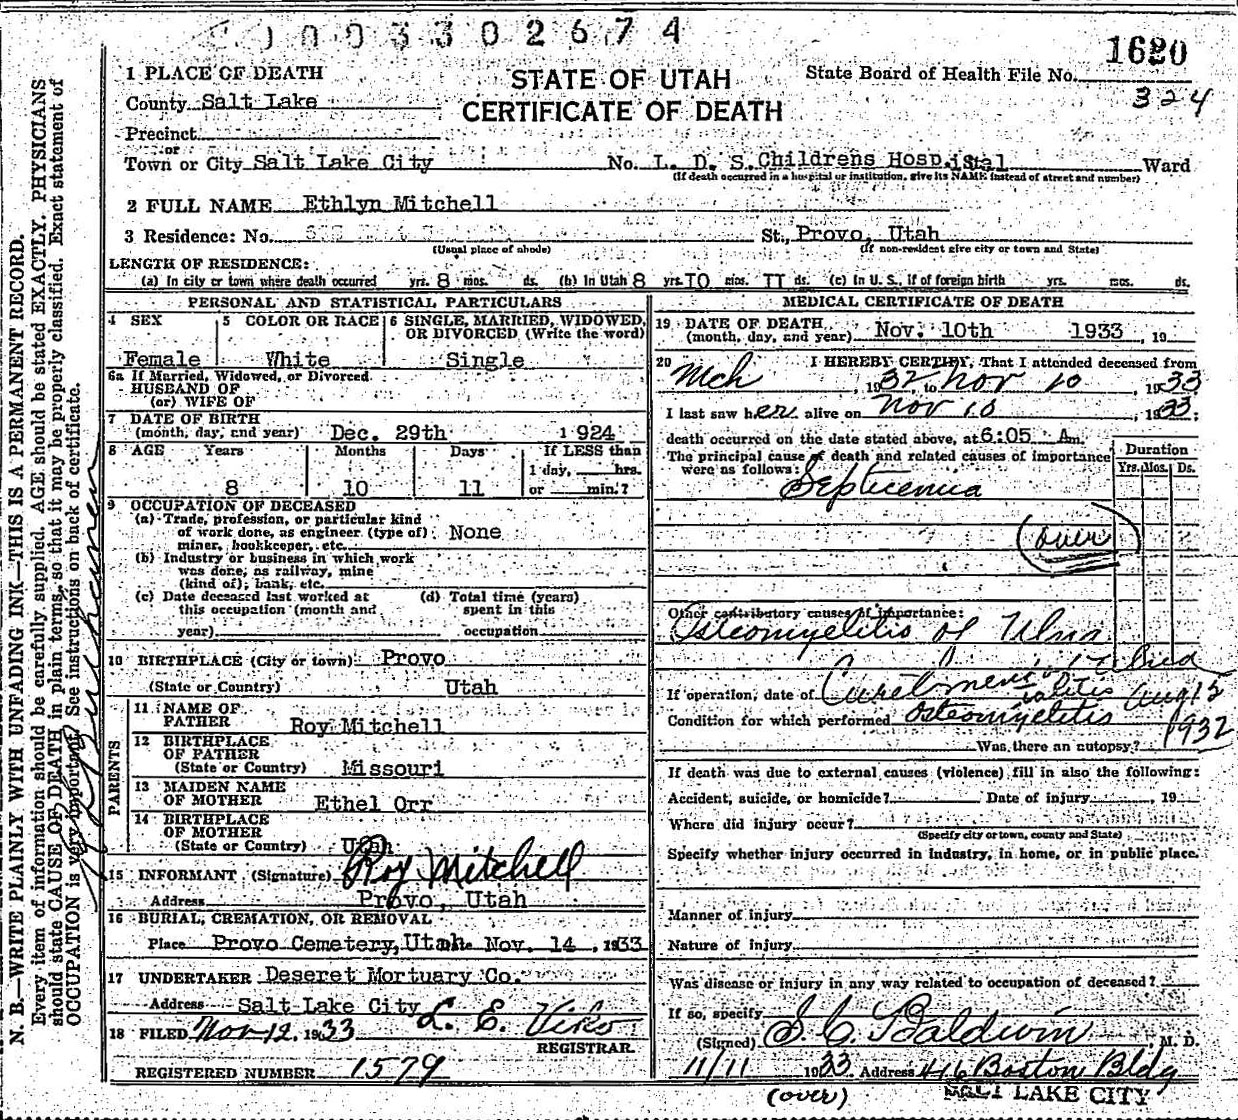 1003302674
1620
1 PLACE OF DEATH
STATE OF UTAH
State Board of Health File No.
324
County Salt Lake
CERTIFICATE OF DEATH
Precinct
or
Town or City Salt Lake City No. L. D. S. Childrens Hospital Ward
(If death occurred in a hospital or institution, give its NAME instead of street and number)
2 FULL NAME Ethlyn Mitchell
3 Residence: No. St., Provo, Utah
(Usual place of abode) (If non-resident give city or town and State)
LENGTH OF RESIDENCE:
(a) In city or town where death occurred yrs. 8 mos. ds. (b) In Utah 8 yrs. 10 mos. 11 ds. (c) In U. S., if of foreign birth yrs. mos. ds.
PERSONAL AND STATISTICAL PARTICULARS
4 SEX 5 COLOR OR RACE 6 SINGLE, MARRIED, WIDOWED,
OR DIVORCED (Write the word)
Female White Single
6a If Married, Widowed, or Divorced
HUSBAND OF
(or) WIFE OF
7 DATE OF BIRTH
(month, day, and year) Dec. 29th 1924
8 AGE Years Months Days If LESS than
1 day, hrs.
8 10 11 or min.?
9 OCCUPATION OF DECEASED
(a) Trade, profession, or particular kind
of work done, as engineer (type of) None
miner, bookkeeper, etc.
(b) Industry or business in which work
was done, as railway, mine
(kind of), bank, etc.
(c) Date deceased last worked at (d) Total time (years)
this occupation (month and spent in this
year) occupation
10 BIRTHPLACE (City or town) Provo
(State or Country) Utah
PARENTS
11 NAME OF
FATHER Roy Mitchell
12 BIRTHPLACE
OF FATHER
(State or Country) Missouri
13 MAIDEN NAME
OF MOTHER Ethel Orr
14 BIRTHPLACE
OF MOTHER
(State or Country) Utah
15 INFORMANT (Signature) Roy Mitchell
Address Provo, Utah
16 BURIAL, CREMATION, OR REMOVAL
Place Provo Cemetery, Utah Nov. 14, 1933
17 UNDERTAKER Deseret Mortuary Co.
Address Salt Lake City
18 FILED Nov 12, 1933 L. E. Viko
REGISTRAR
REGISTERED NUMBER 1579
MEDICAL CERTIFICATE OF DEATH
19 DATE OF DEATH
(month, day, and year) Nov. 10th 1933, 19
20 I HEREBY CERTIFY, That I attended deceased from
Mch, 1932, to Nov 10, 1933
I last saw her alive on Nov 10, 1933;
death occurred on the date stated above, at 6:05 Am.
The principal cause of death and related causes of importance
were as follows:
Duration
Yrs. Mos. Ds.
Septicemia
(over)
Other contributory causes of importance:
Osteomyelitis of Ulna
If operation, date of Curetment of Aug 15
Condition for which performed Osteomyelitis 1932
Was there an autopsy?
If death was due to external causes (violence) fill in also the following:
Accident, suicide, or homicide? Date of injury, 19
Where did injury occur?
(Specify city or town, county and State)
Specify whether injury occurred in industry, in home, or in public place.
Manner of injury
Nature of injury
Was disease or injury in any way related to occupation of deceased?
If so, specify
(Signed) S. C. Baldwin, M. D.
11/11 1933 Address 416 Boston Bldg
(over) SALT LAKE CITY
N. B.—WRITE PLAINLY WITH UNFADING INK—THIS IS A PERMANENT RECORD.
Every item of information should be carefully supplied. AGE should be stated EXACTLY. PHYSICIANS
should state CAUSE OF DEATH in plain terms, so that it may be properly classified. Exact statement of
OCCUPATION is very important. See instructions on back of certificate.